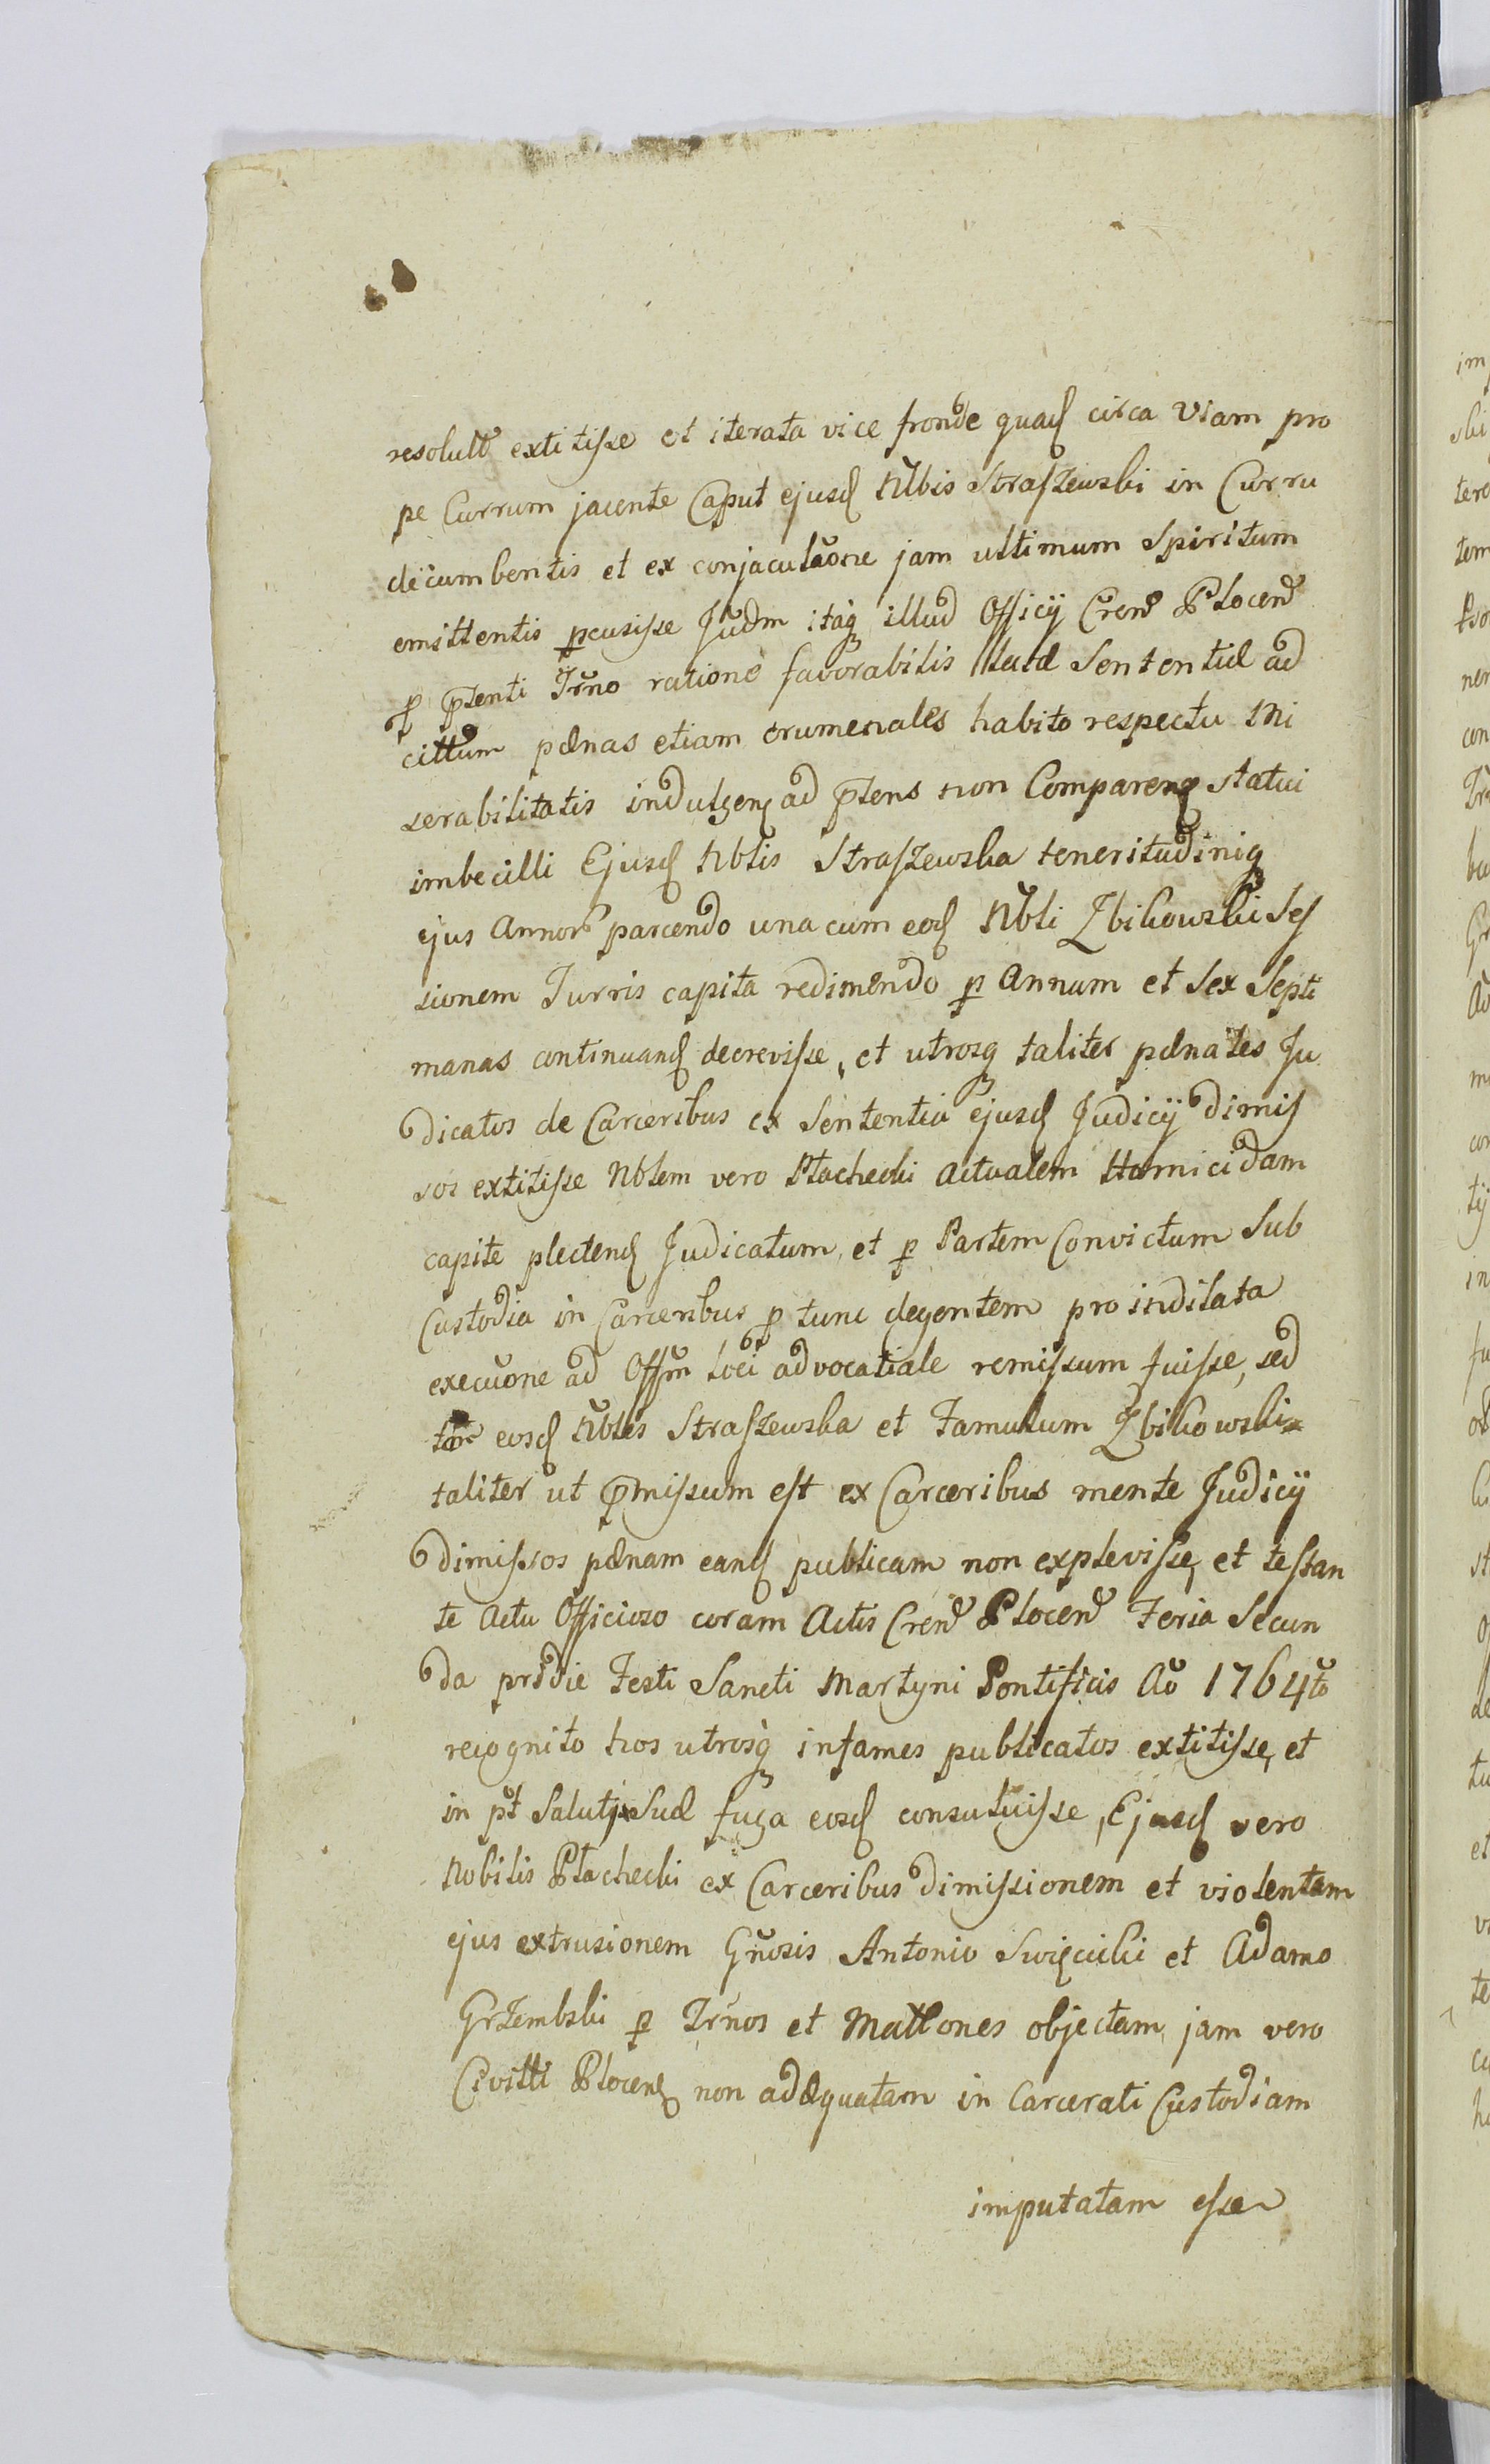 resolutt extitisse et iterata vice fronde quad circa Viam pro
pe Currum jacente Caput ejusd Nblis Straszewski in Curru
decumbentis et ex conjaculaone jam ultimum Spiritum
emittentis pcusisse Judm itaq illud Officij Cren Plocen
p ptenti Trno ratione favorabilis suæ Sententiæ ad
cittum pænas etiam crumenales habito respectu Mi
serabilitatis indulgen ad ptens non Comparen statui
imbecilli Ejusd Nblis Straszewska teneritudiniq
ejus Annor parcendo una cum eod Nbli Zbikowski Ses
sionem Turris capita redimendo p Annum et Sex Septi
manas continuand decrevisse, et utrosq taliter pænales Ju
dicatos de Carceribus ex Sententia ejusd Judicij dimis
sos extitisse Nblem vero Płachecki actualem Homicidam
capite plectend Judicatum, et p Partem Convictum Sub
Custodia in Carceribus p tunc degentem pro indilata
execuone ad Offm loci advocatiale remissum fuisse, sed
eosd Nbles Straszewska et Famulum Zbikowski
taliter ut pmissum est ex Carceribus mente Judicij
dimissos pænam eand publicam non explevisse, et testan
te Actu Officioso coram Actis Cren Plocen Feria Secun
da pridie Festi Sancti Martyni Pontificis Ao 1764to
recognito hos utrosq infames publicatos extitisse, et
in pt Saluti Suæ fuga eosd consuluisse, Ejusd vero
Nobilis Płachecki ex Carceribus dimissionem et violentam
ejus extrusionem Gnosis Antonio Swięcicki et Adamo
Grzembski p Trnos et Mattones objectam, jam vero
Civitti Plocen non adæquatam in Carcerati Custodiam
imputatam esse